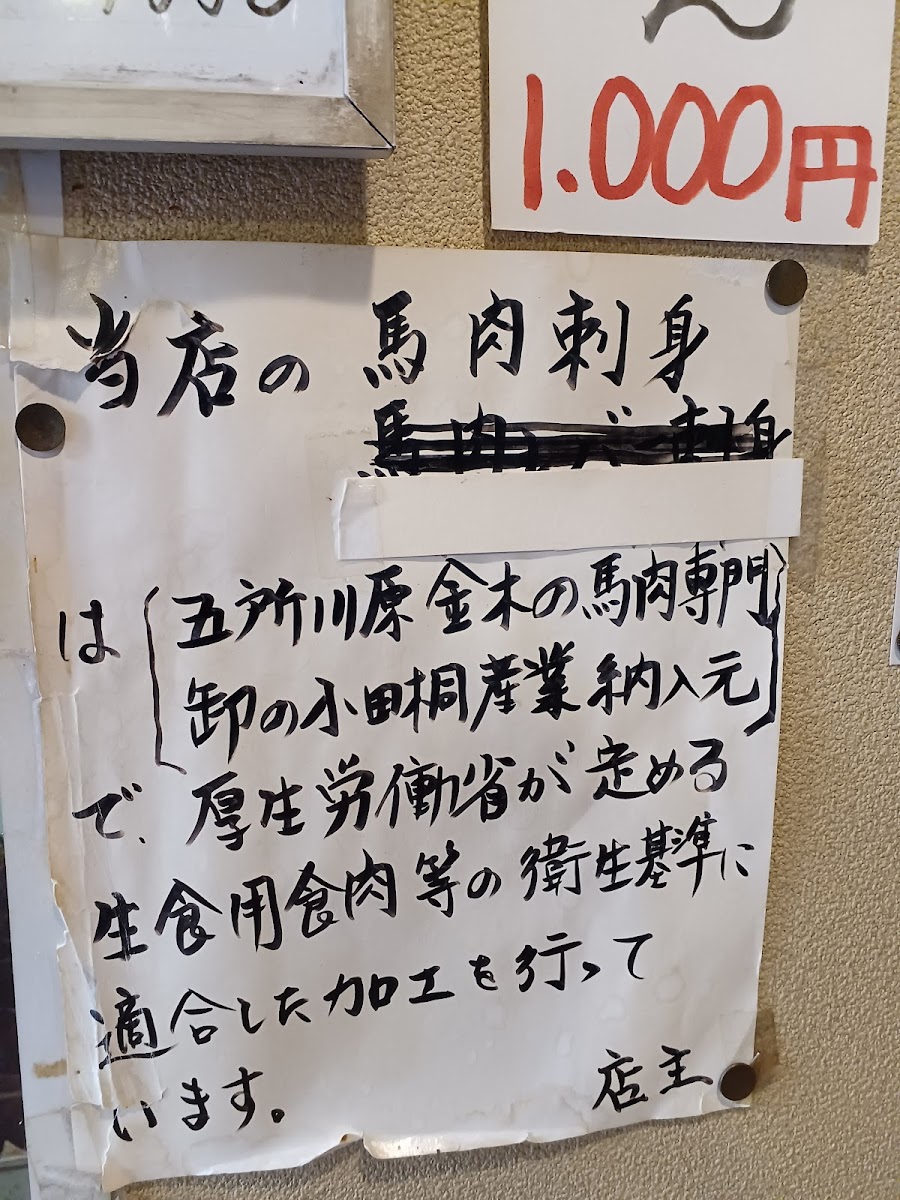 1.000円
当店の 馬肉刺身
馬肉レバー刺身
は 五所川原金木の馬肉専門
卸の小田桐産業納入元
で、厚生労働省が定める
生食用食肉等の衛生基準に
適合した加工を行って
います。 店主